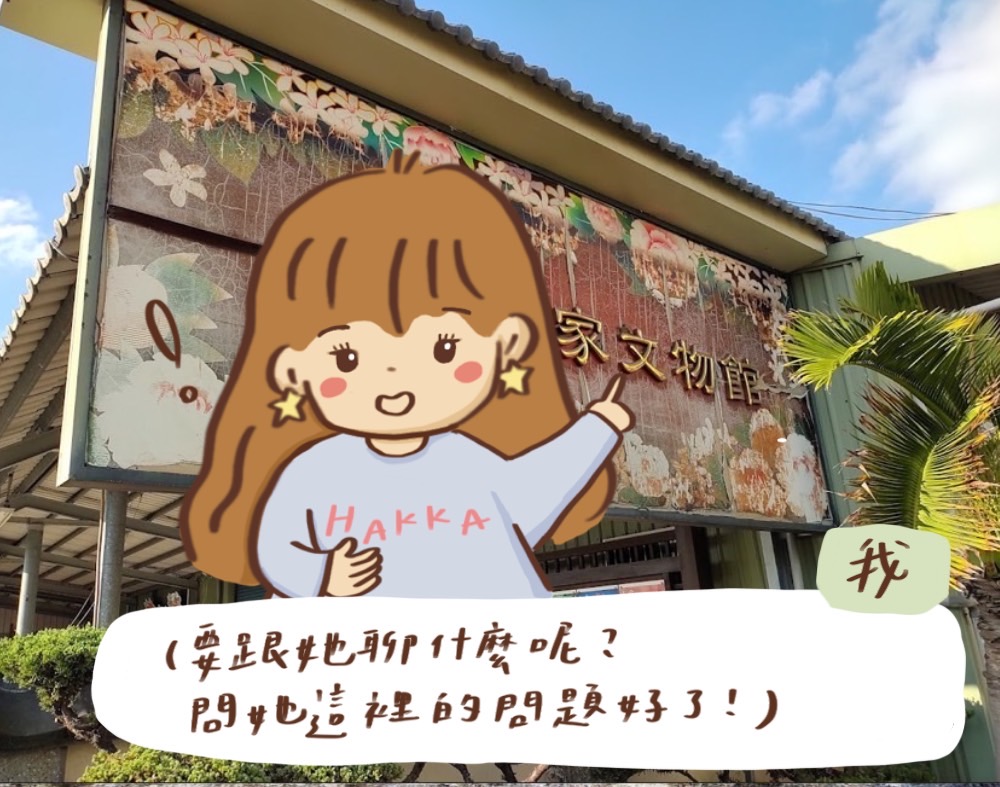 家文物館
HAKKA
我
(要跟她聊什麼呢？
問她這裡的問題好了！)